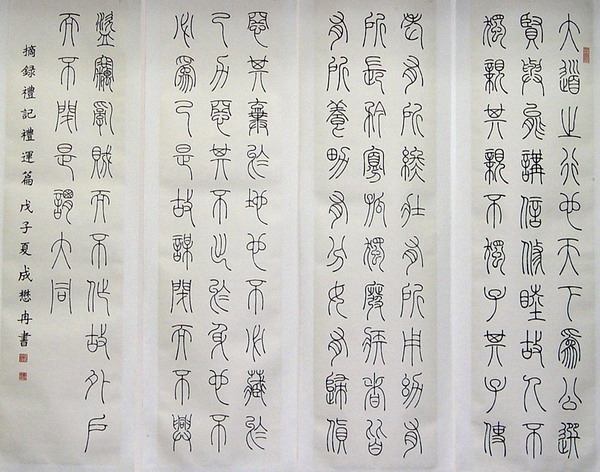 大道之行也天下為公選
賢與能講信修睦故人不
獨親其親不獨子其子使
老有所終壯有所用幼有
所長矜寡孤獨廢疾者皆
有所養男有分女有歸貨
惡其棄於地也不必藏於
己力惡其不出於身也不
必為己是故謀閉而不興
盜竊亂賊而不作故外戶
而不閉是謂大同
摘録禮記禮運篇 戊子夏 成懋冉書